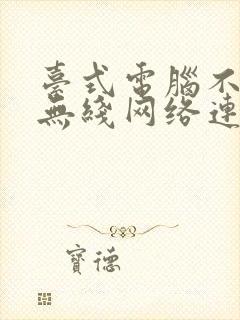 臺式電腦不
無綫网络連
寶德